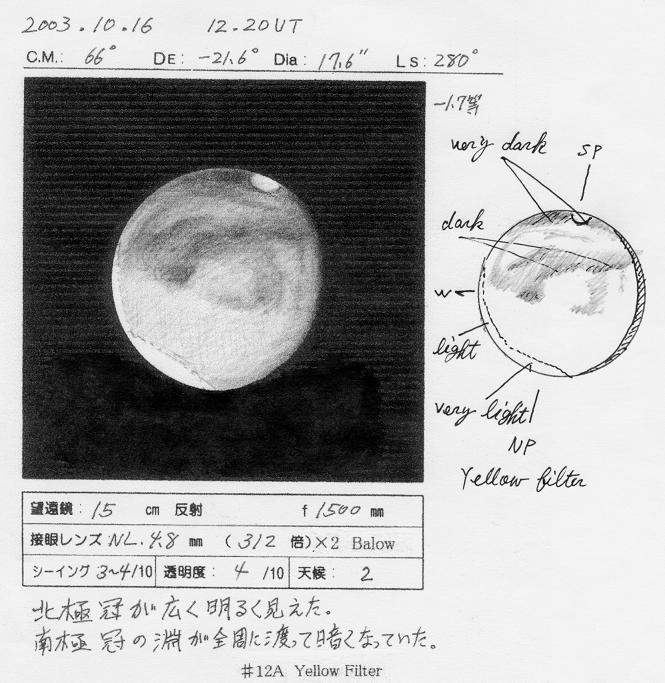 2003.10.16 12.20UT
C.M.: 66° DE: -21.6° Dia: 17.6" Ls: 280°
-1.7等
very dark SP
dark
W
light
very light
NP
Yellow filter
望遠鏡: 15 cm 反射 f 1500 mm
接眼レンズ NL. 4.8 mm (312 倍)×2 Balow
シーイング 3~4/10 透明度: 4 /10 天候: 2
北極冠が広く明るく見えた。
南極冠の淵が全周に渡って暗くなっていた。
#12A Yellow Filter